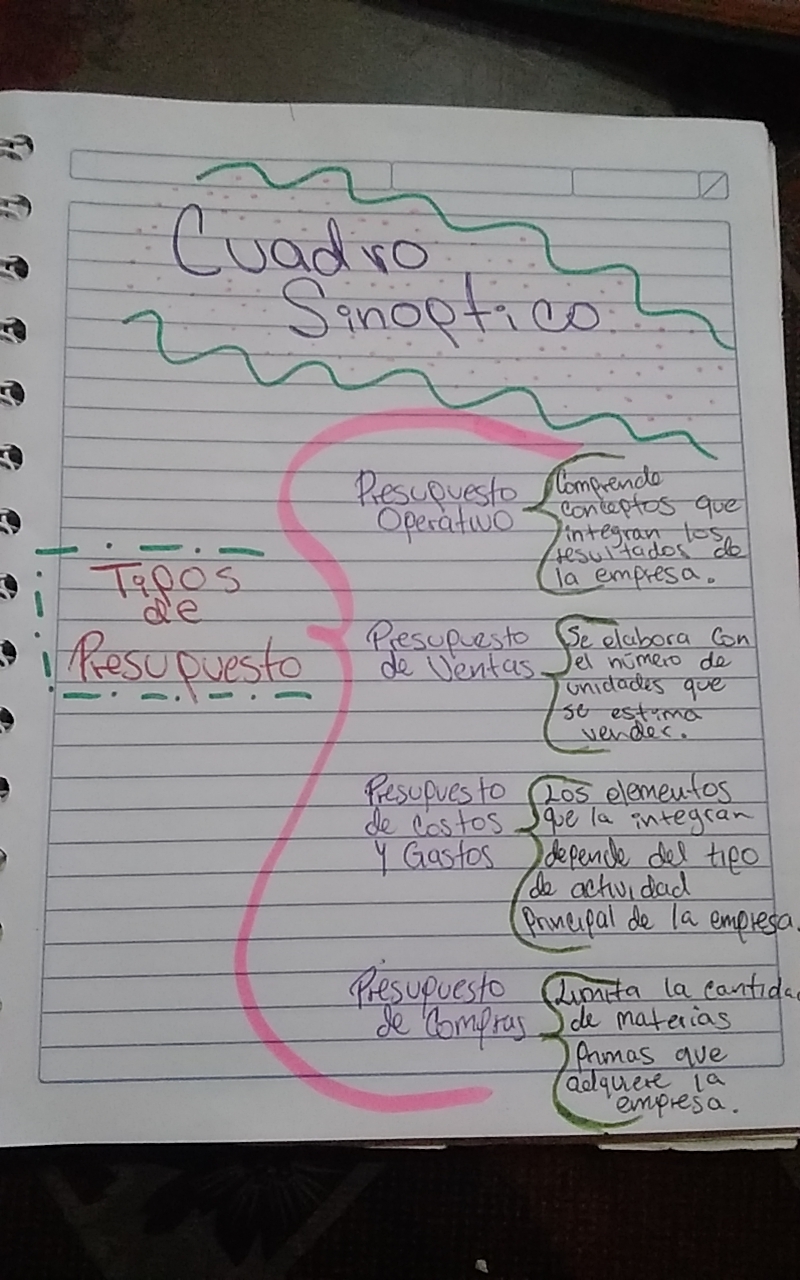 Cuadro
Sinoptico
Tipos
de
Presupuesto
Presupuesto
Operativo
Comprende
conceptos que
integran los
resultados de
la empresa.
Presupuesto
de Ventas
Se elabora con
el número de
unidades que
se estima
vender.
Presupuesto
de Costos
y Gastos
Los elementos
que la integran
depende del tipo
de actividad
principal de la empresa.
Presupuesto
de Compras
Limita la cantidad
de materias
primas que
adquiere la
empresa.